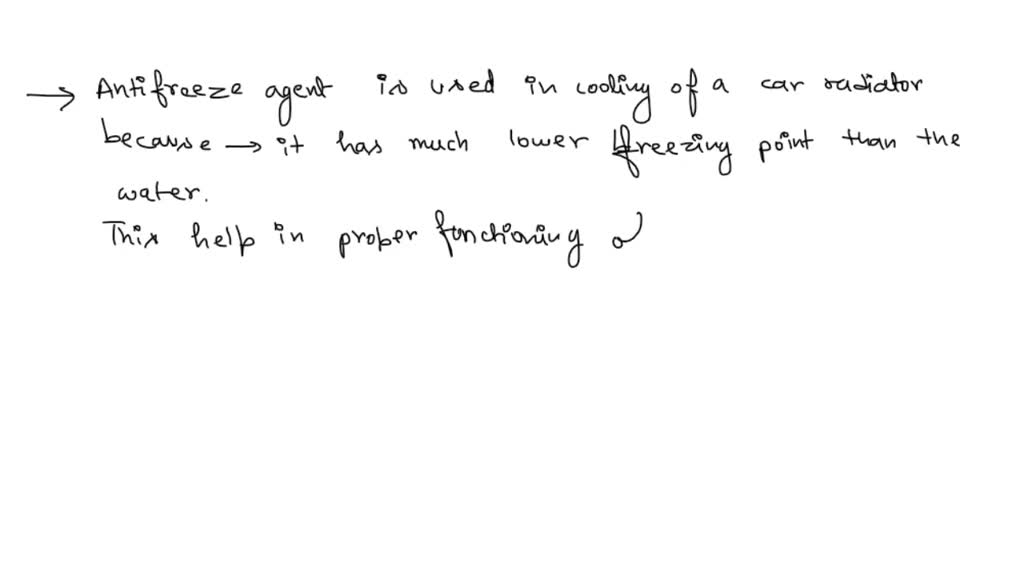 → Antifreeze agent is used in cooling of a car radiator
because → it has much lower freezing point than the
water.
This help in proper functioning o